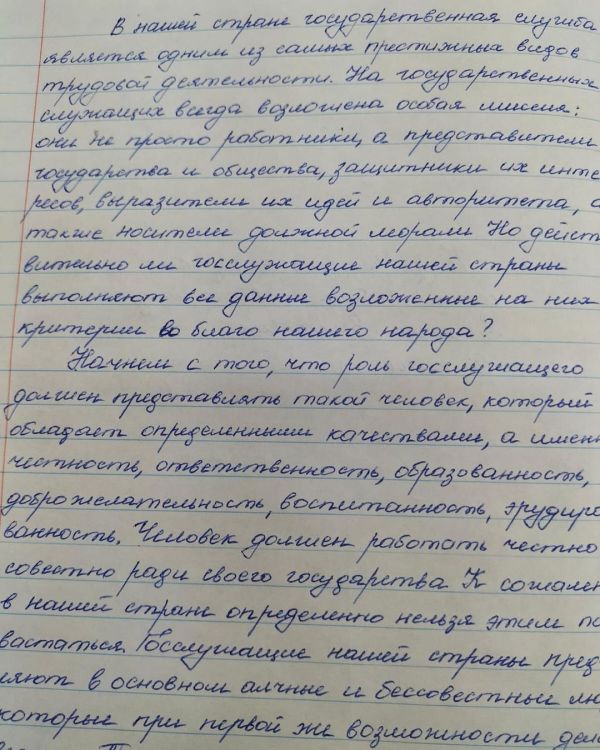 В нашей стране государственная служба
является одним из самых престижных видов
трудовой деятельности. На государственных
служащих всегда возложена особая миссия:
они не просто работники, а представители
государства и общества, защитники их инте
ресов, выразители их идей и авторитета, а
также носители должной морали Но дейст
вительно ли госслужащие нашей страны
выполняют все данные возложенные на них
критерии во благо нашего народа?
Начнем с того, что роль госслужащего
должен представлять такой человек, который
обладает определенными качествами, а имен
честность, ответственность, образованность,
доброжелательность, воспитанность, эрудиро
ванность. Человек должен работать честно
совестно ради своего государства К сожален
в нашей стране определенно нельзя этим по
вастаться. Госслужащие нашей страны пред
ляют в основном алчные и бессовестные лю
которые при первой же возможности дела